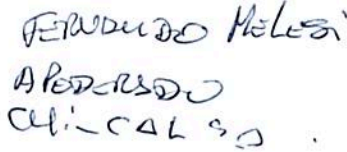 FERNANDO MELESI
APODERADO
CHI-CAL S.A.